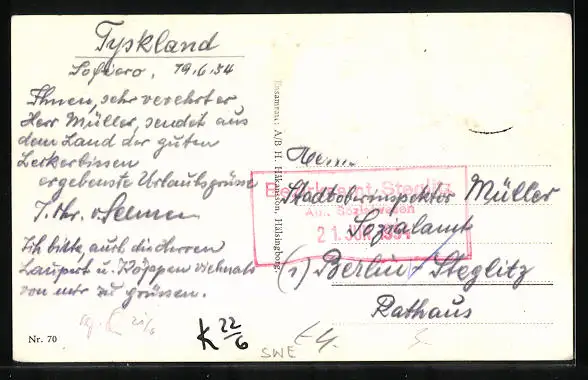 Tyskland
Sofiero, 19.6.34
Ihnen, sehr verehrter
Herr Müller, sendet aus
dem Land der guten
Leckerbissen
ergebenste Urlaubsgrüsse
Ihr
Ich bitte, auch die Herren
Laupert u. vielmals
von mir zu grüssen.
Nr. 70
K 22/6
SWE
Ensamrätt: A/B H. Håkansson, Hälsingborg.
Herrn
Stadtoberinspektor Müller
Sozialamt
(1) Berlin-Steglitz
Rathaus
Bezirksamt Steglitz
Amt Sozialwesen
21. JUN. 1934